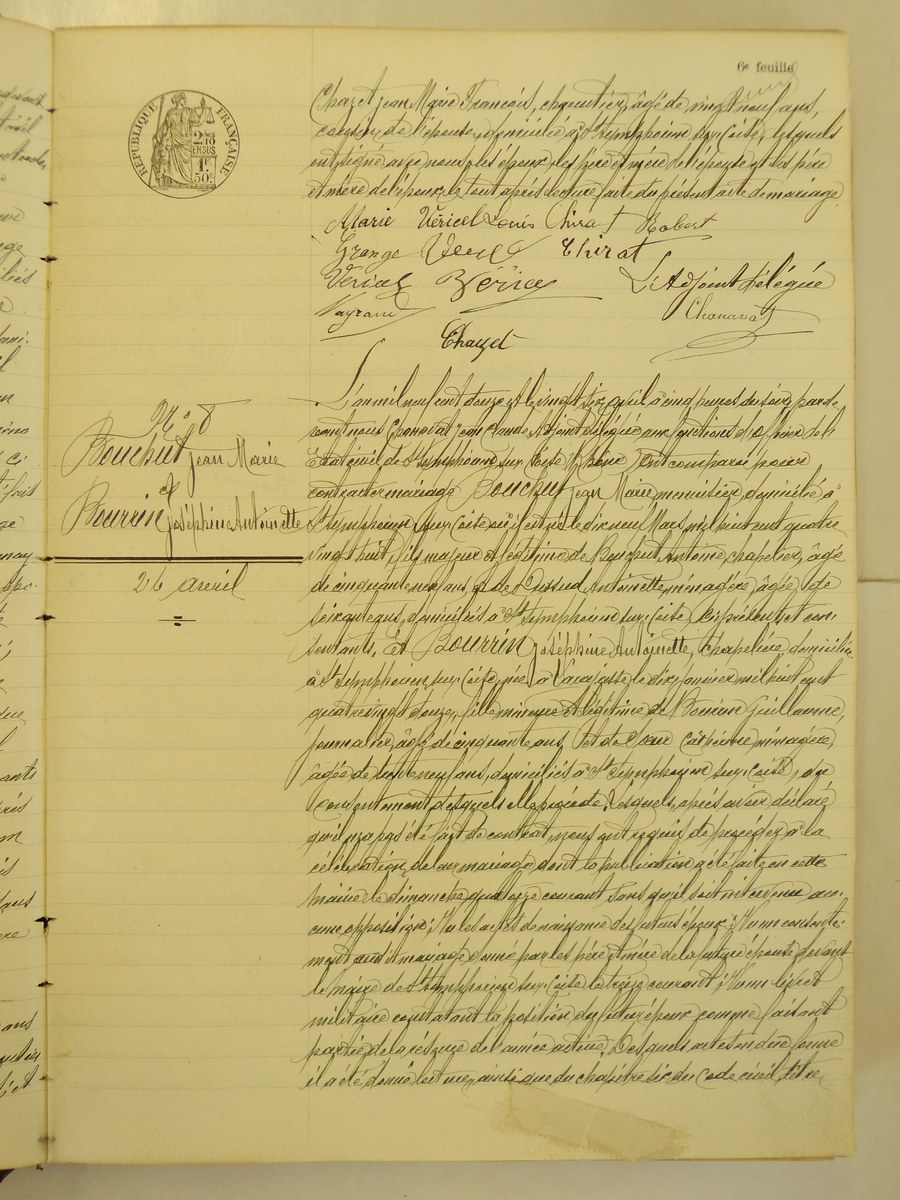 6e feuille
RÉPUBLIQUE FRANÇAISE
2/10
EN SUS
1F
50c
Chazet Jean Marie François, charcutier, âgé de vingt neuf ans,
cousin de l'épouse, domicilié à St Symphorien sur Coise, lesquels
ont signé avec nous, les époux, les père et mère de l'épouse et les père
et mère de l'époux, le tout après lecture faite du présent acte de mariage.
Marie Véricel Louis Chirat Robert
Grange Chirat
Véricel Véricel L'Adjoint délégué
Nayrand Chanavat
Chazet
No 8
Bouchut Jean Marie
et
Bourrin Joséphine Antoinette
26 avril
L'an mil neuf cent douze et le vingt six avril à cinq heures du soir, par de
vant nous Chanavat Jean Claude Adjoint délégué aux fonctions d'officier de l'
Etat civil de St Symphorien sur Coise, Rhône, ont comparu pour
contracter mariage Bouchut Jean Marie menuisier, domicilié à
St Symphorien sur Coise où il est né le dix neuf Mars mil huit cent quatre
vingt huit, fils majeur et légitime de Bouchut Antoine, chapelier, âgé
de cinquante ans et de Antoinette, ménagère, âgée de
ans, domiciliés à St Symphorien sur Coise, ici présents et con
sentants. Et Bourrin Joséphine Antoinette, chapelière, domiciliée
à St Symphorien sur Coise, née à le dix janvier mil huit cent
quatre vingt douze, fille mineure et légitime de Bourrin Guillaume,
journalier, âgé de cinquante ans et de Catherine, ménagère,
âgée de trente neuf ans, domiciliés à St Symphorien sur Coise, du
consentement desquels elle procède. Lesquels, après avoir déclaré
qu'il n'a pas été fait de contrat, nous ont requis de procéder à la
célébration de leur mariage dont la publication a été faite en cette
mairie le dimanche quatorze courant sans qu'il soit intervenu au
cune opposition; Vu les actes de naissance des futurs époux; Vu un consente
ment audit mariage donné par les père et mère de la future épouse devant
le maire de St Symphorien sur Coise le treize courant; Vu un livret
militaire constatant la position du futur époux comme faisant
partie de la réserve de l'armée active. Desquels actes en due forme
il a été donné lecture, ainsi que du chapitre six du Code civil, titre